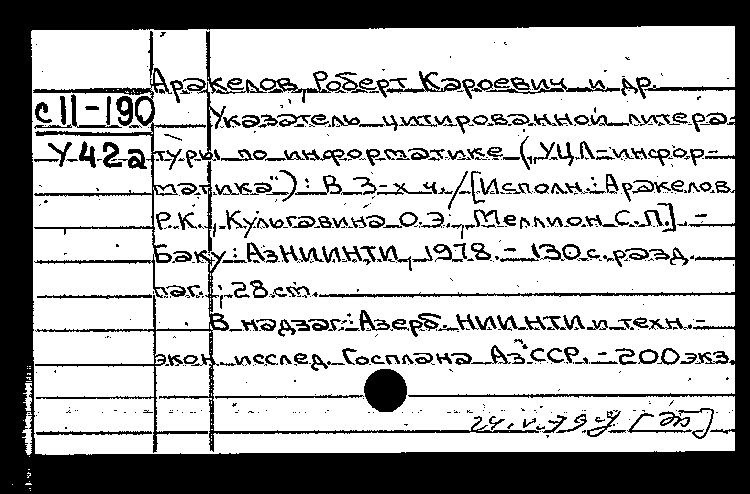 Аракелов, Роберт Кароевич и др.
с11-190
Указатель цитированной литера-
У42а
туры по информатике („УЦЛ-инфор-
матика"): В 3-х ч./[Исполн.: Аракелов
Р.К., Кульгавина О.Э., Меллион С.П.]. -
Баку: АзНИИНТИ, 1978. - 130 с. разд.
паг.; 28 см.
В надзаг.: Азерб. НИИ НТИ и техн.-
экон. исслед. Госплана АзССР. - 200 экз.